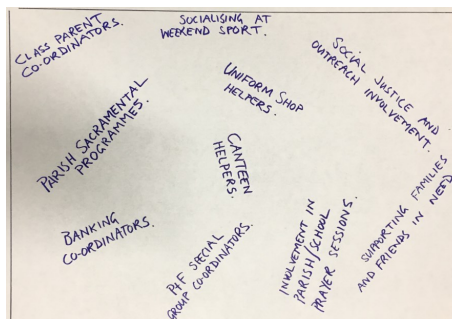 CLASS PARENT
CO-ORDINATORS.
SOCIALISING AT
WEEKEND SPORT.
SOCIAL JUSTICE AND
OUTREACH INVOLVEMENT.
UNIFORM SHOP
HELPERS.
PARISH SACRAMENTAL
PROGRAMMES.
CANTEEN
HELPERS.
BANKING
CO-ORDINATORS.
P+F SPECIAL
GROUP CO-ORDINATORS.
INVOLVEMENT IN
PARISH/SCHOOL
PRAYER SESSIONS.
SUPPORTING FAMILIES
AND FRIENDS IN NEED